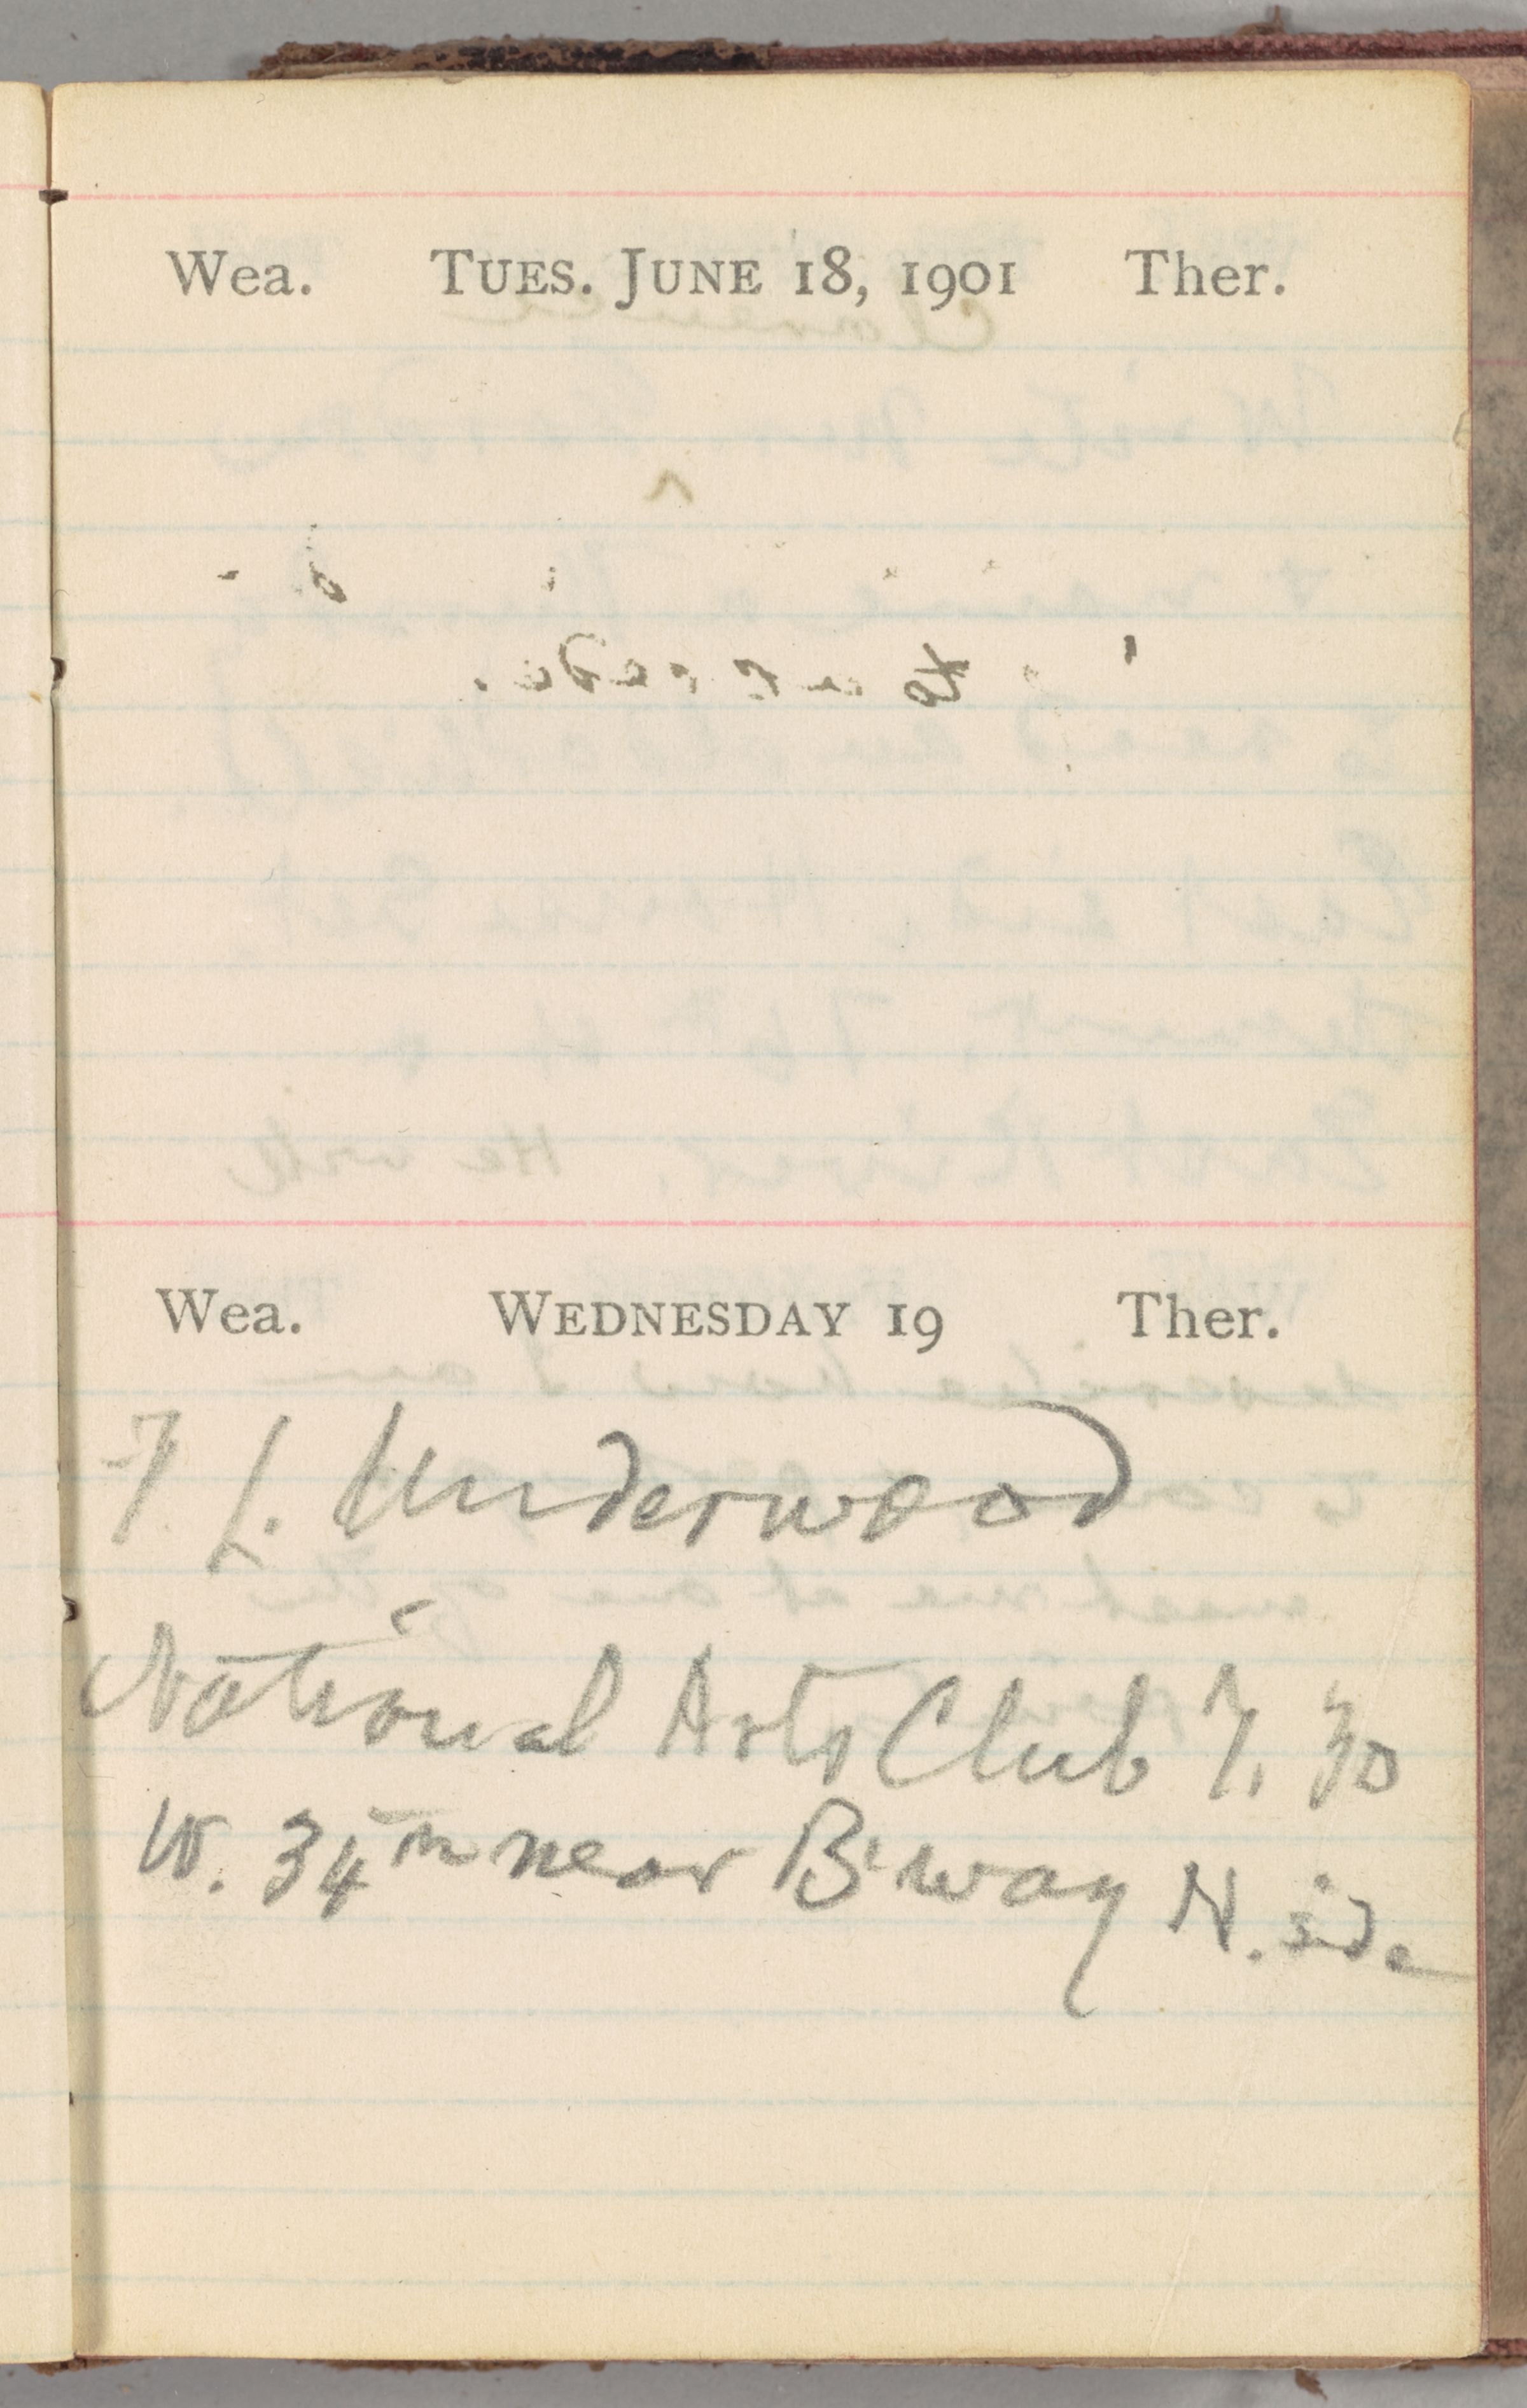 Wea. TUES. JUNE 18, 1901 Ther.
Wea. WEDNESDAY 19 Ther.
F L. Underwood
National Arts Club 7.30
W. 34th near B'way N. side